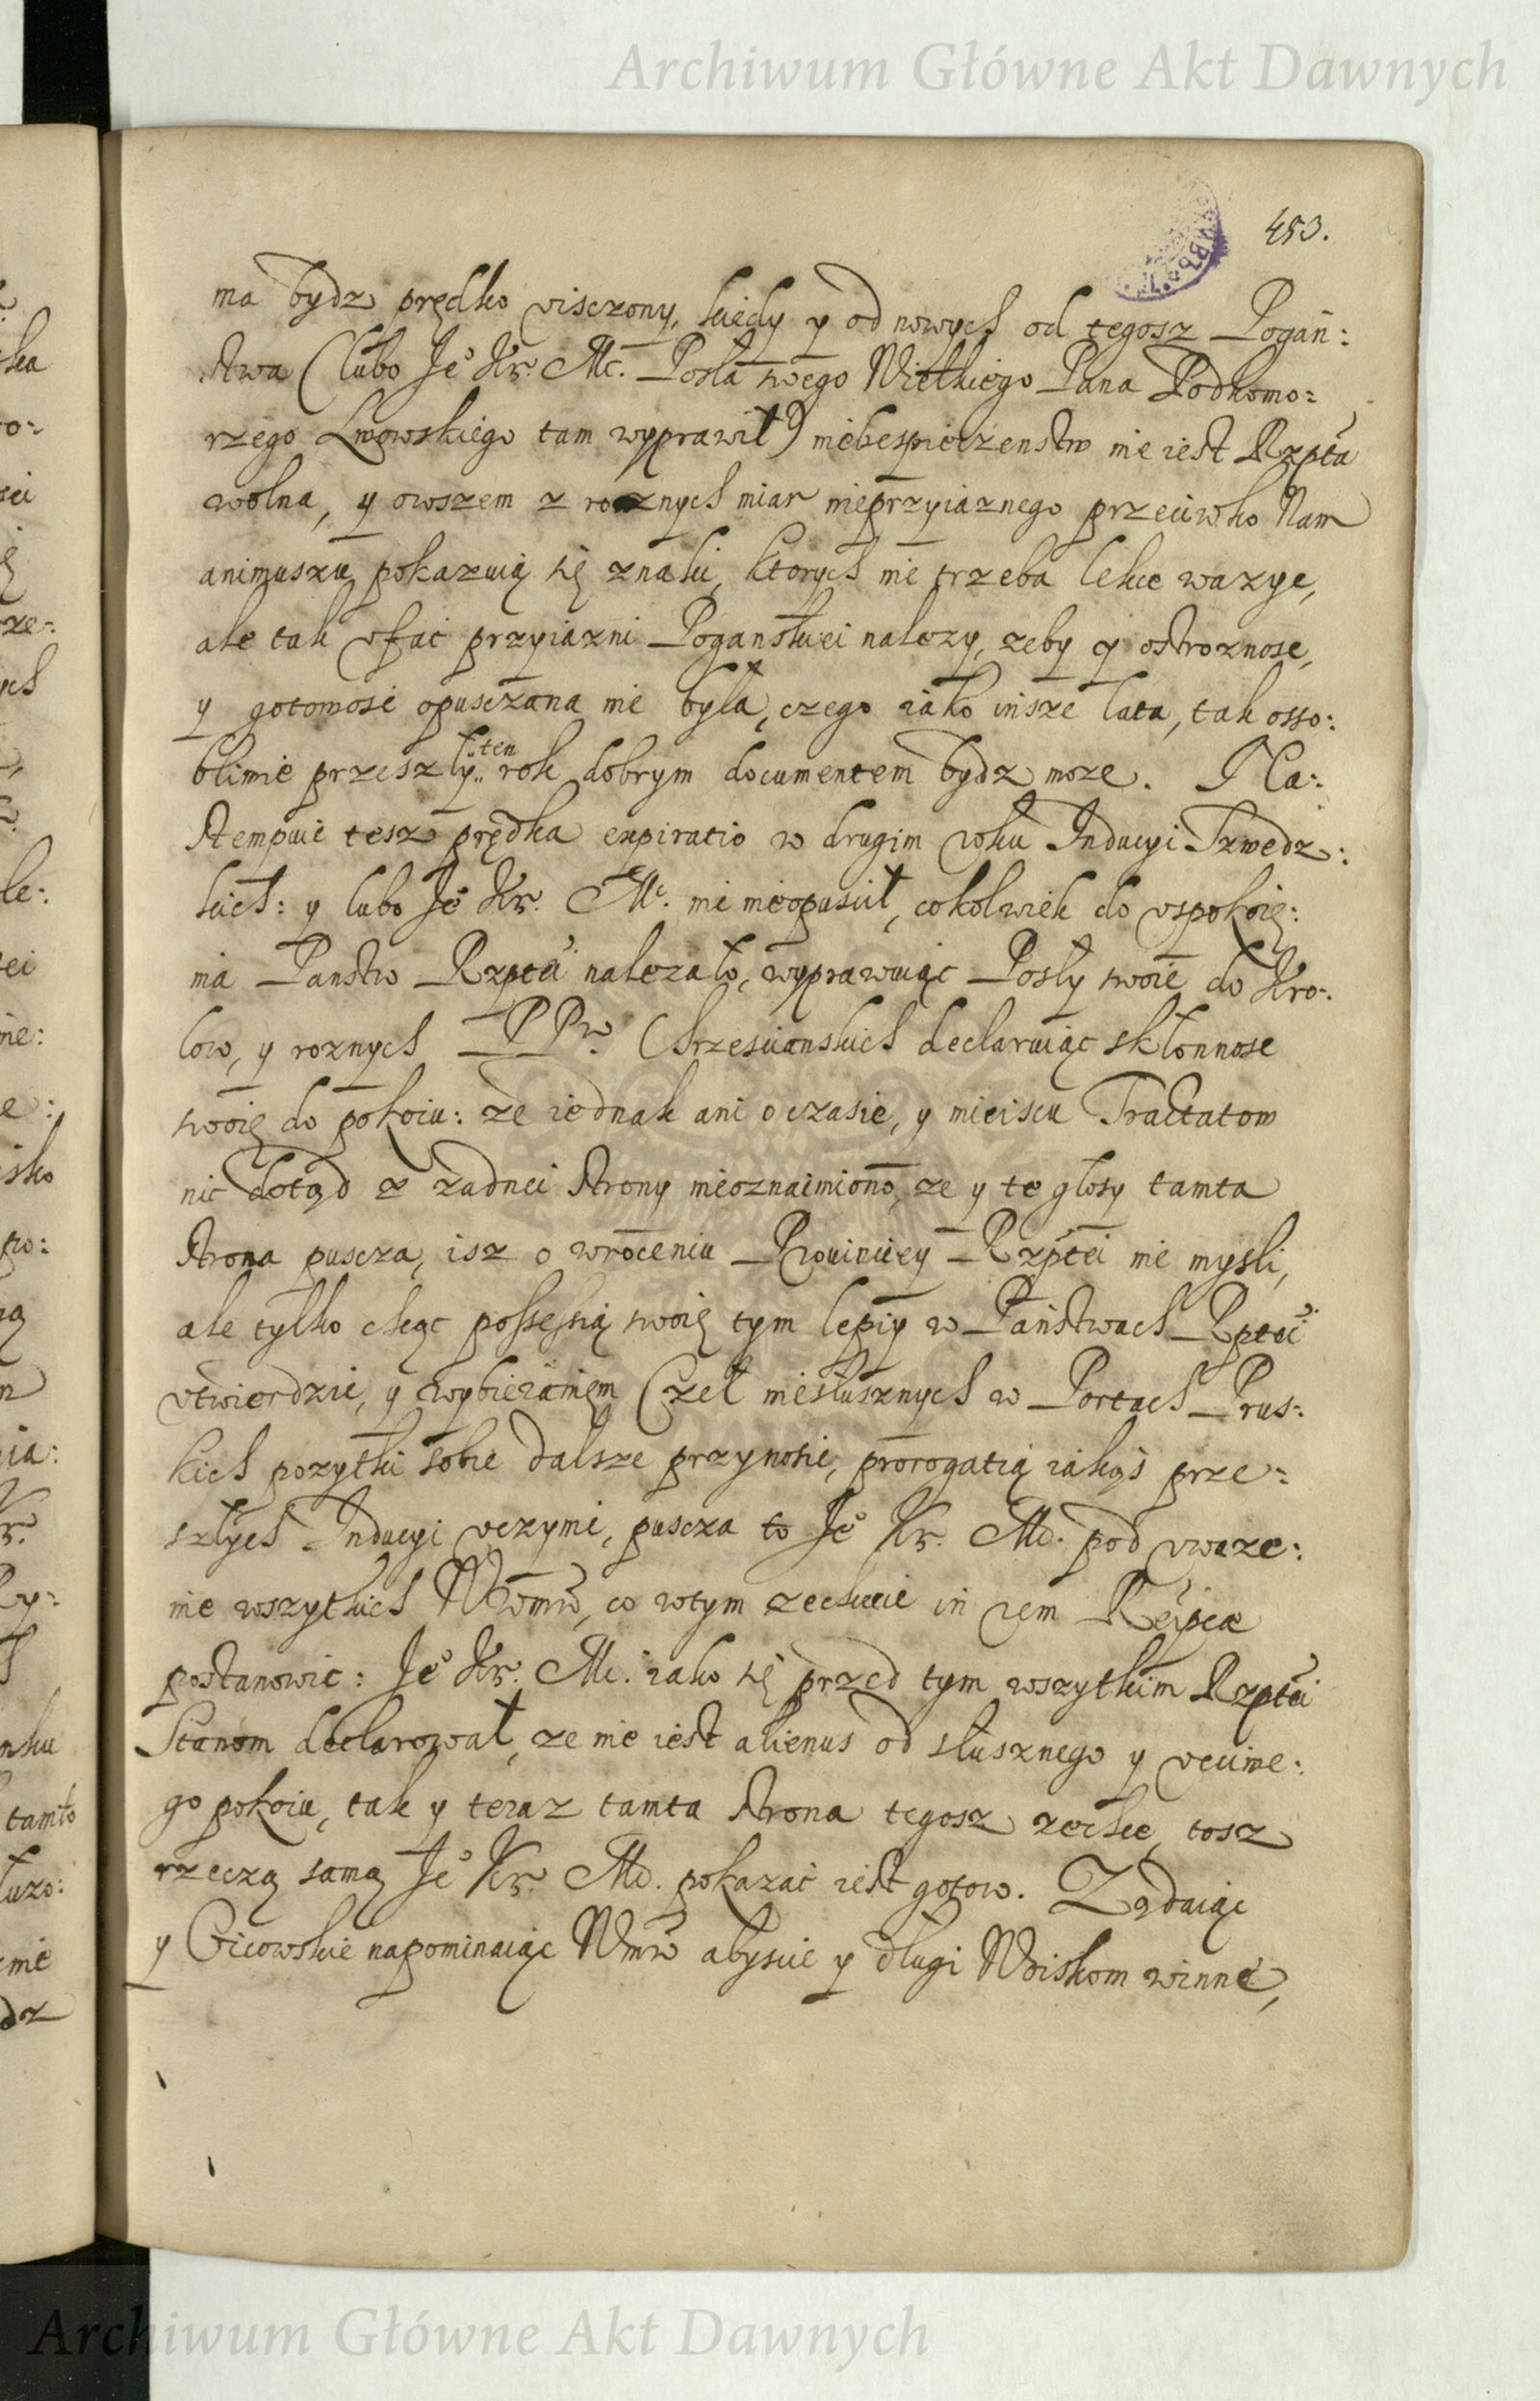 Archiwum Główne Akt Dawnych
453.
ma bydz prędko visczony, kiedy y od nowych od tegosz Pogań:
stwa (lubo Je° Kr. Mć. Posła swego Wielkiego Pana Podkomo:
rzego Lwowskiego tam wyprawił) niebespieczenstw nie iest Rzpta
wolna, y owszem z roznych miar nieprzyiaznego przeciwko Nam
animuszu pokazuią się znaki, ktorych nie trzeba lekce wazyc,
ale tak vfać przyiazni Poganskiei nalezy, zeby y ostroznosc,
y gotowosć opusczona nie była, czego iako insze lata, tak osso:
bliwie przeszły ten rok dobrym documentem bydz moze. Na:
stempuie tesz prędka expiratio w drugim roku Inducyi Szwedz:
kich: y lubo Je° Kr. Mć. nic nieopuscił, cokolwiek do vspokoię:
nia Panstw Rzptei nalezało, wyprawuiąc Posły swoie do Kro:
low, y roznych PPw. Chrzescianskich declaruiąc skłonnosc
swoię do pokoiu: ze iednak ani o czasie, y mieiscu Tractatow
nic dotąd z zadnei strony nieoznaimiono, ze y te głosy tamta
strona puscza, isz o wroceniu Prouinciey Rzptei nie mysli,
ale tylko chcąc possessią swoię tym lepiy w Państwach Rptei
vtwierdzic, y wybieraniem Czeł niesłusznych w Portach Prus:
kich pozytki sobie dalsze przynosic, prorogatią iakąs prze:
szłych Inducyi vczyni, puscza to Je° Kr. Mć. pod vwaze:
nie wszytkich Wmw, co wtym zechcecie in rem Reipcæ
postanowic: Je° Kr. Mć. iako się przed tym wszytkim Rzptei
Stanom declarował, ze nie iest alienus od słusznego y vcciwe:
go pokoiu, tak y teraz tamta strona tegosz zechce, tosz
rzeczą samą Je° Kr. Mć. pokazać iest gotow. Ządaiąc
y Oicowskie napominaiąc Wmw abyscie y długi Woiskom winne,
Archiwum Główne Akt Dawnych